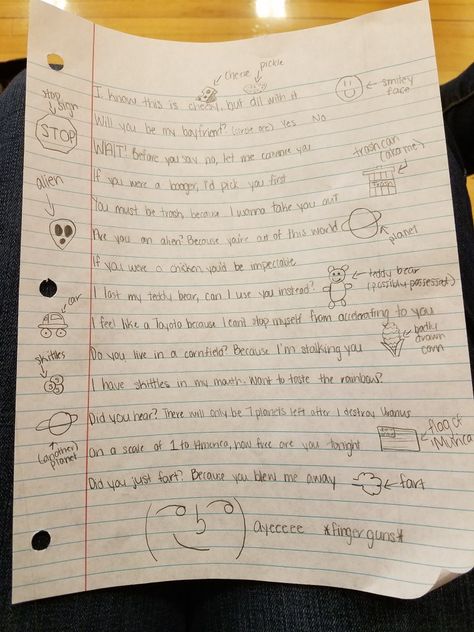 cheese pickle
I know this is cheesy, but dill with it
smiley face
stop sign
STOP
Will you be my boyfriend? (circle one) Yes No
WAIT! Before you say no, let me convince you
trashcan (aka me)
Trash
If you were a booger, I'd pick you first
alien
You must be trash, because I wanna take you out
Are you an alien? Because you're out of this world
planet
If you were a chicken you'd be impeccable
I lost my teddy bear, can I use you instead?
teddy bear (possibly possessed)
car
I feel like a Toyota because I can't stop myself from accelerating to you
Do you live in a cornfield? Because I'm stalking you
badly drawn corn
skittles
I have skittles in my mouth. Want to taste the rainbow?
Did you hear? There will only be 7 planets left after I destroy Uranus
(another) planet
On a scale of 1 to America, how free are you tonight
flag of 'Murica
Did you just fart? Because you blew me away
fart
ayeeeee *finger guns*